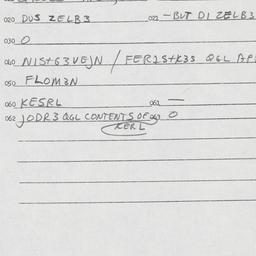 020 DUS ZELB3 022 - BUT DI ZELB3
030 O
040 NIST63VEJN / FER2S+K3S QGL
050 FLOM3N
060 KESRL 061 —
062 JODR3 QGL CONTENTS OF 063 O
KERL